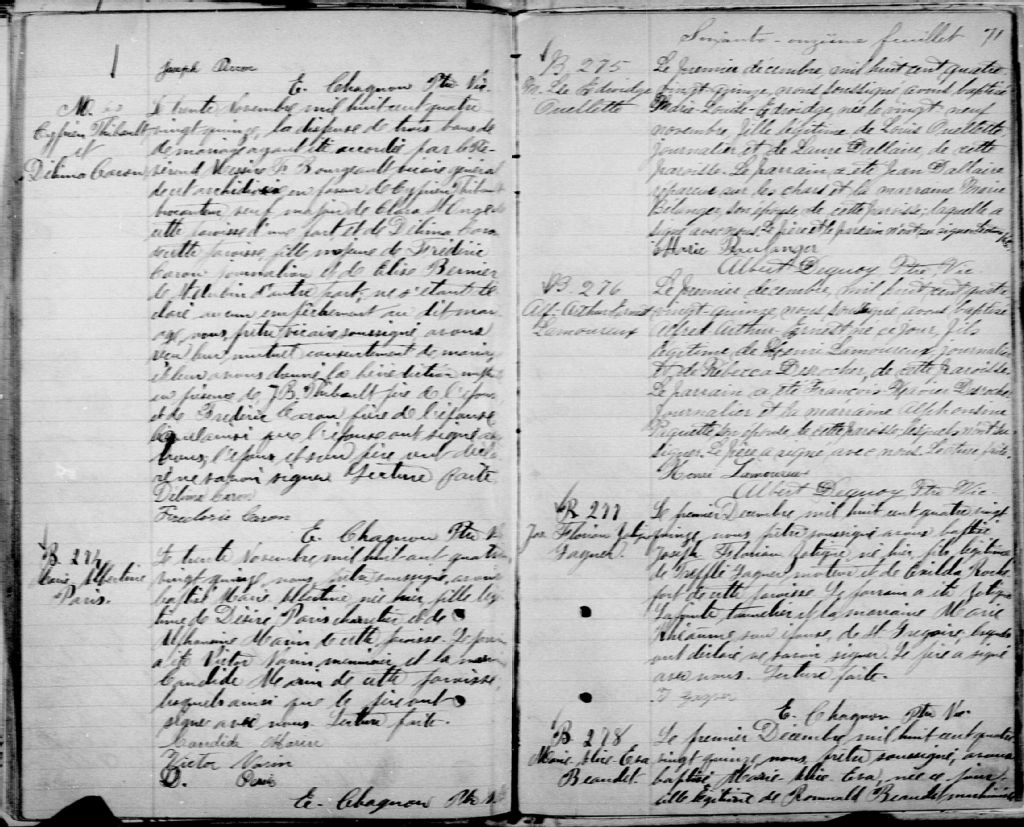 Joseph Perron
E. Chagnon Ptre Vic.
M.
Cyprien Thibault
et
Délima Caron
Le trente Novembre mil huit cent quatre
vingt quinze, la dispense de trois bans
de mariage ayant été accordée par le Ré-
vérend Messire F. Bourgeault vicaire général
de cet archidiocèse en faveur de Cyprien Thibault
brocanteur veuf majeur de Clara St Onge de
cette paroisse d'une part et de Délima Caron
de cette paroisse, fille majeure de Frédéric
Caron et de Elise Bernier
de St Aubin d'autre part; ne s'étant dé-
claré aucun empêchement au dit mari-
age, nous, prêtre vicaire soussigné avons
reçu leur mutuel consentement de mariage
et leur avons donné la bénédiction nuptiale
en présence de J. B. Thibault père de l'époux
et de Frédéric Caron père de l'épouse
lequel ainsi que l'épouse ont signé a-
vec nous; l'époux et son père ont décla-
ré ne savoir signer. Lecture faite
Délima Caron
Frederic Caron
E. Chagnon Ptre V
B 274
Marie Albertine
Paris.
Le trente Novembre mil huit cent quatre
vingt quinze, nous prêtre soussigné, avons
baptisé Marie Albertine née hier, fille légi-
time de Désiré Paris charretier et de
Alphonsine Marin de cette paroisse. Le parrain
a été Victor Varin menuisier et la marraine
Candide Marin de cette paroisse,
lesquels ainsi que le père ont
signé avec nous. Lecture faite.
Candide Marin
Victor Varin
D. Paris
E. Chagnon Ptre V
Soixante-onzième feuillet 71
B 275
M. Ls Edwidge
Ouellette
Le premier décembre, mil huit cent quatre
vingt quinze, nous soussigné avons baptisé
Marie-Louise-Edwidge, née le vingt neuf
novembre, fille légitime de Louis Ouellette
journalier et de Laura Dallaire, de cette
paroisse. Le parrain a été Jean Dallaire
sur les chars et la marraine Marie
Bélanger, son épouse de cette paroisse; laquelle a
signé avec nous. Le père et le parrain n'ont su signer. Lecture
Marie Boulanger
Albert Dequoy Ptre Vic.
B. 276
Alf. Arthur Ernest
Lamoureux
Le premier décembre, mil huit cent quatre
vingt-quinze nous soussigné avons baptisé
Alfred Arthur Ernest né ce jour, fils
légitime de Henri Lamoureux, journalier
et de Rébecca Desrocher, de cette paroisse
Le parrain a été François-Xavier Desrocher
Journalier et la marraine Alphonsine
Paquette son épouse de cette paroisse, lesquels n'ont su
signer. Le père a signé avec nous. Lecture faite.
Henri Lamoureux
Albert Dequoy Ptre Vic
B 277
Jos. Florian Zotique
Gagner.
Le premier Décembre mil huit cent quatre vingt
quinze, nous, prêtre soussigné avons baptisé
Joseph Florian Zotique né hier, fils légitime
de Trefflé Gagner, mouleur et de Exilda Roche-
fort de cette paroisse. Le parrain a été Zotique
Lafonte tonnelier et la marraine Marie
Rhéaume son épouse, de St Grégoire, lesquels
ont déclaré ne savoir signer. Le père a signé
avec nous. Lecture faite.
T Gagner
E. Chagnon Ptre Vic.
B 278
Marie Alice Eva
Beaudet.
Le premier Décembre mil huit cent quatre
vingt quinze, nous, prêtre soussigné, avons
baptisé Marie Alice Eva, née ce jour
fille légitime de Romuald Beaudet machiniste